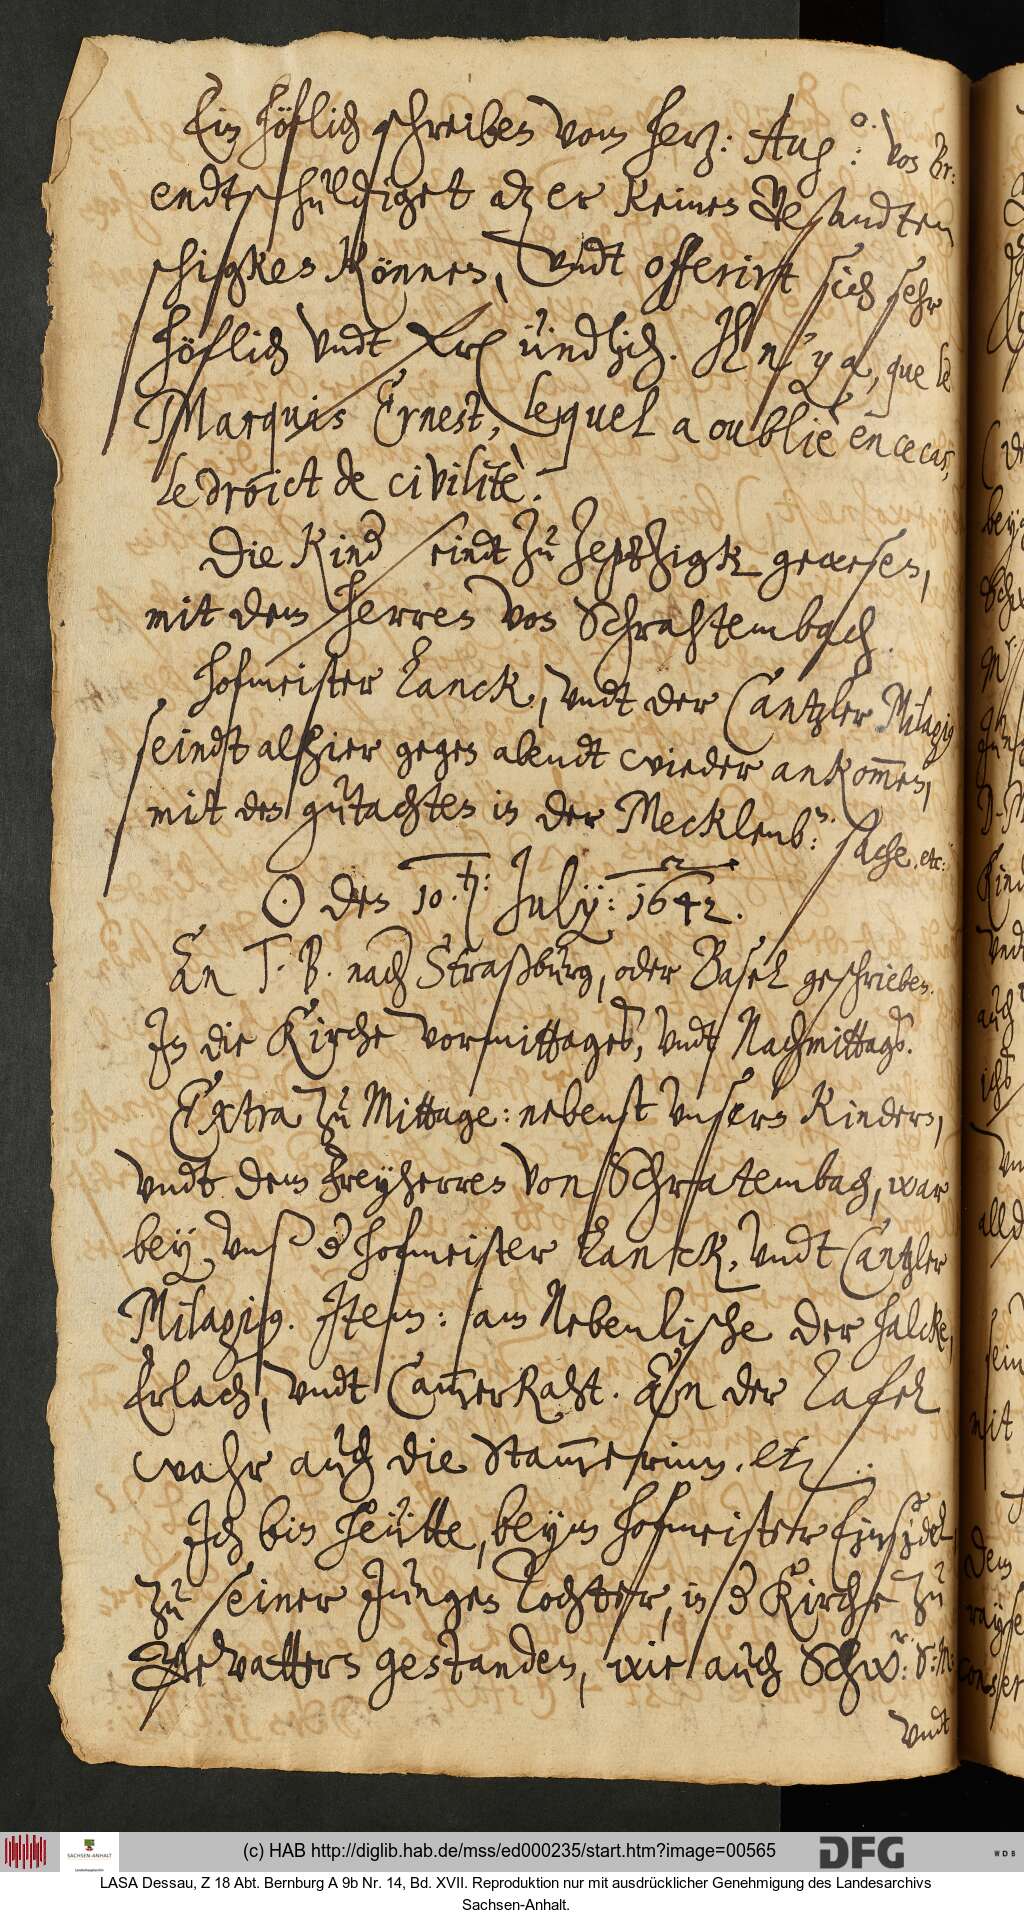 Ein höflich schreiben vom Herz: Aug:o von Br:
endtschuldiget dz er keinen Gesandten
schigken können, vndt offerirt sich sehr
höflich vndt fre㐱ündtlich. Jl n'y a, que le
Marquis Ernest, lequel a oubliè en ce cas,
le droict de civilitè.-
Die Kind seindt zu Zepzigk gewesen,
mit dem Herren von Schrahtembach.
Hofmeister Lanck, vndt der Cantzler Milagius
seindt alhier gegen abendt wieder ankom̅en,
mit den gutachten in der Mecklenb:n. sache. etc:
☉ den 10.ten: July: 1642.
An T. B. nach Straßburg, oder Basel geschrieben.
In die Kirche vormittages, vndt Nachmittags.
Extra zu Mittage: nebenst vnsern Kindern,
vndt dem Freyherren von Schratembach, war
bey vnß der Hofmeister Lanck, vndt Cantzler
Milagius. Item: am Nebentische der Halcke,
Erlach, vndt Cam̅erRaht. An der Tafel
wahr auch die Stam̅erinn. etc.
Ich bin heütte, beym hofmeister Einsidel,
zu seiner Jungen Tochter, in der Kirche zu
Gevattern gestanden, wie auch Schw:r. S: M:
vndt
(c) HAB http://diglib.hab.de/mss/ed000235/start.htm?image=00565
SACHSEN-ANHALT
DFG
WDB
LASA Dessau, Z 18 Abt. Bernburg A 9b Nr. 14, Bd. XVII. Reproduktion nur mit ausdrücklicher Genehmigung des Landesarchivs
Sachsen-Anhalt.